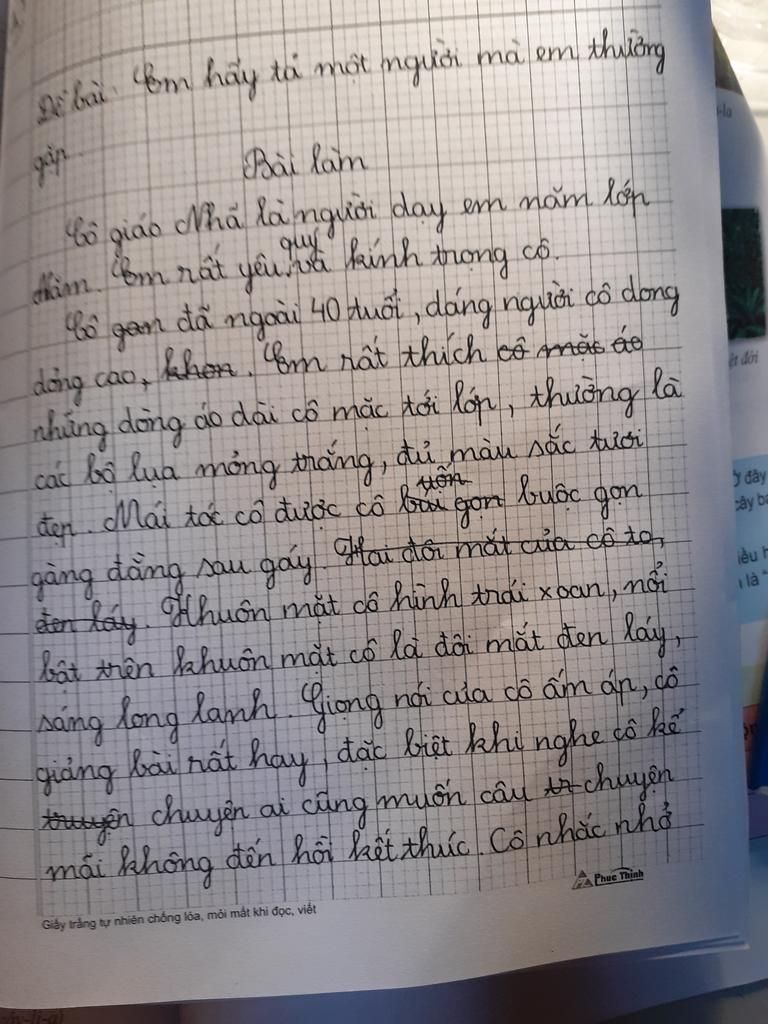 Đề bài: Em hãy tả một người mà em thường
gặp.
Bài làm
Cô giáo Nhã là người dạy em năm lớp
quý
năm. Em rất yêu, và kính trọng cô.
Cô gan đã ngoài 40 tuổi, dáng người cô dong
dỏng cao, khon. Em rất thích cô mặc áo
những dòng áo dài cô mặc tới lớp, thường là
các bộ lụa mỏng trắng, đủ màu sắc tươi
uốn
đẹp. Mái tóc cô được cô búi gọn buộc gọn
gàng đằng sau gáy. Hai đôi mắt của cô to,
đen láy. Khuôn mặt cô hình trái xoan, nổi
bật trên khuôn mặt cô là đôi mắt đen láy,
sáng long lanh. Giọng nói của cô ấm áp, cô
giảng bài rất hay, đặc biệt khi nghe cô kể
truyện chuyện ai cũng muốn câu tr chuyện
mãi không đến hồi kết thúc. Cô nhắc nhở
Phuc Thinh
Giấy trắng tự nhiên chống lóa, mỏi mắt khi đọc, viết
ệt đới